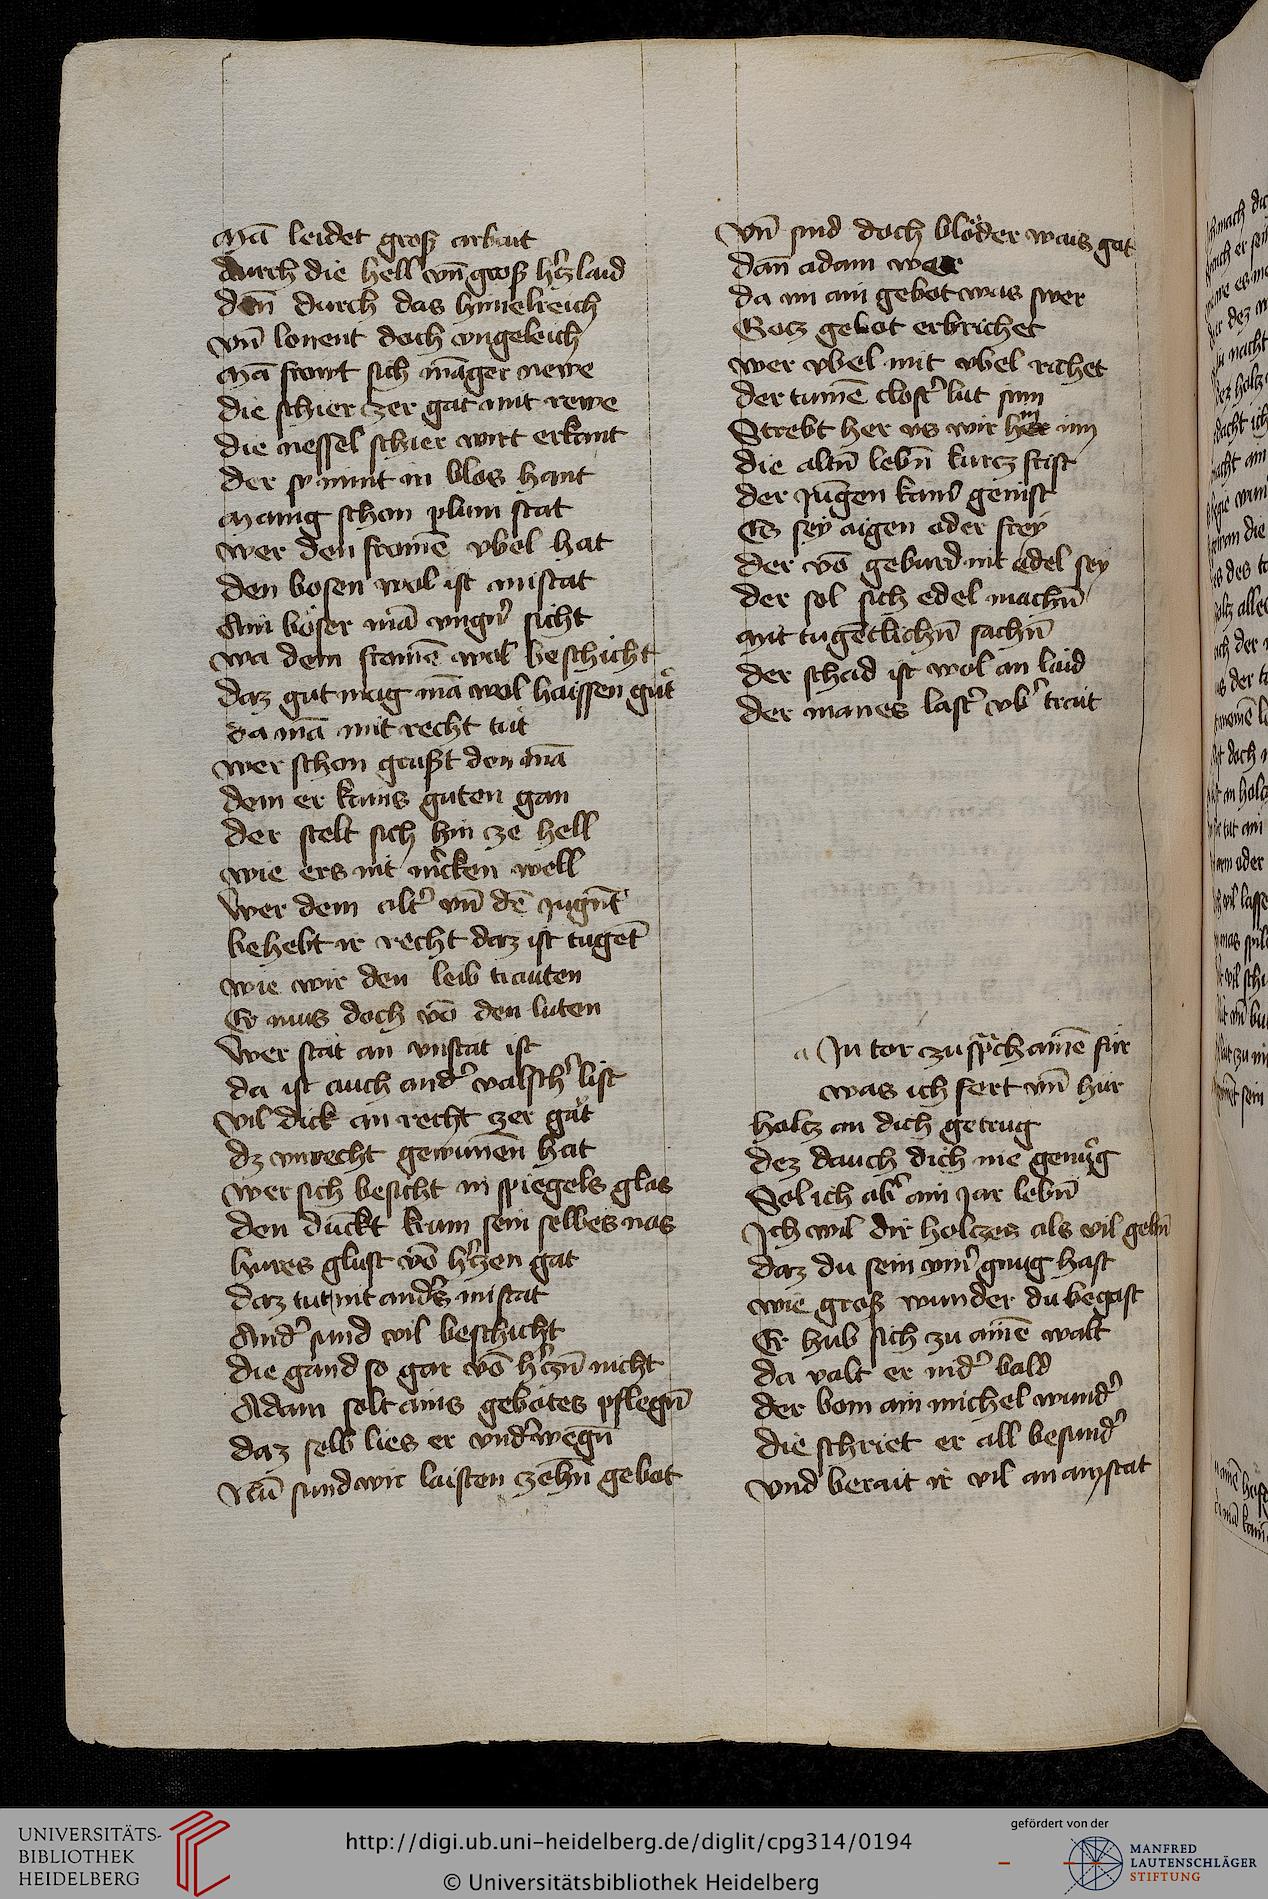 Mā leidet groß arbait
durch die hell vn̄ groß hʼtzlaid
den̄ durch das himelreich
vn̄ lonent doch vngeleich
Mā frowt sich māger newe
die schier zer gat mit rewe
die nessel schier wirt erkant
der sy nimt in blos hant
Manig schon plum stat
wer den fromē vbel hat
den bosen wol ist mistat
Ain böser mā vngnʼ sicht
wa dem fromē wol beschicht
daz gut mag mā wol haissen gůt
da mā mit recht tut
wer schon grußt den mā
dem er kains guten gan
der stelt sich hin ze hell
wie ers nit mʼcken well
Wer dem altʼ vn̄ dē jugent
behebt ir recht daz ist tuget̄
wie wir den leib trauten
Er mus doch vō den luten
Wer stat an vnstat ist
da ist auch andʼ valschʼ list
vil dick an recht zer gat
dz vnrecht gewunnen hat
wer sich besicht in spiegels glas
den duckt krum sein selbes nas
hures glust vō hʼtzen gat
daz tut nit andʼs mistat
Andʼ sund vil beschicht
die gand so gar vō hʼczn̄ nicht
Adam solt ains gebotes pflegn̄
daz selb lies er vndʼwegn̄
Nū sund wir laisten zehn̄ gebot
Vn̄ sind doch blöder wais got
dan̄ adam wer
da im ain gebot was swer
Gotz gebot erbrichet
wer vbel mit vbel richet
der tumē clostʼ lut sin
Strebt her vs wir hin in
die altn̄ lebn̄ kurcz frist
der jungen kainʼ genist
Es sey aigen oder frey
der vō geburd nit edel sey
der sol sich edel machn̄
mit tugetlichn̄ sachn̄
der schad ist wol an laid
der manes lastʼ vbʼ trait
a Jn tor zu sprach ainē für
was ich fert vn̄ hür
holtz an dich getrug
dez dauch dich nie genůg
Sol ich abʼ ain jar lebn̄
Jch wil dir holczes als vil gebn̄
daz du sein ymʼ gnug hast
wie groß wunder du begast
Er hub sich zu ainē walt
da valt er nidʼ bald
der bom ain michel wundʼ
die schriet er all besundʼ
vnd berait ir vil an aӱstat
UNIVERSITÄTS-
BIBLIOTHEK
HEIDELBERG
http://digi.ub.uni-heidelberg.de/diglit/cpg314/0194
© Universitätsbibliothek Heidelberg
gefördert von der
MANFRED
LAUTENSCHLÄGER
STIFTUNG